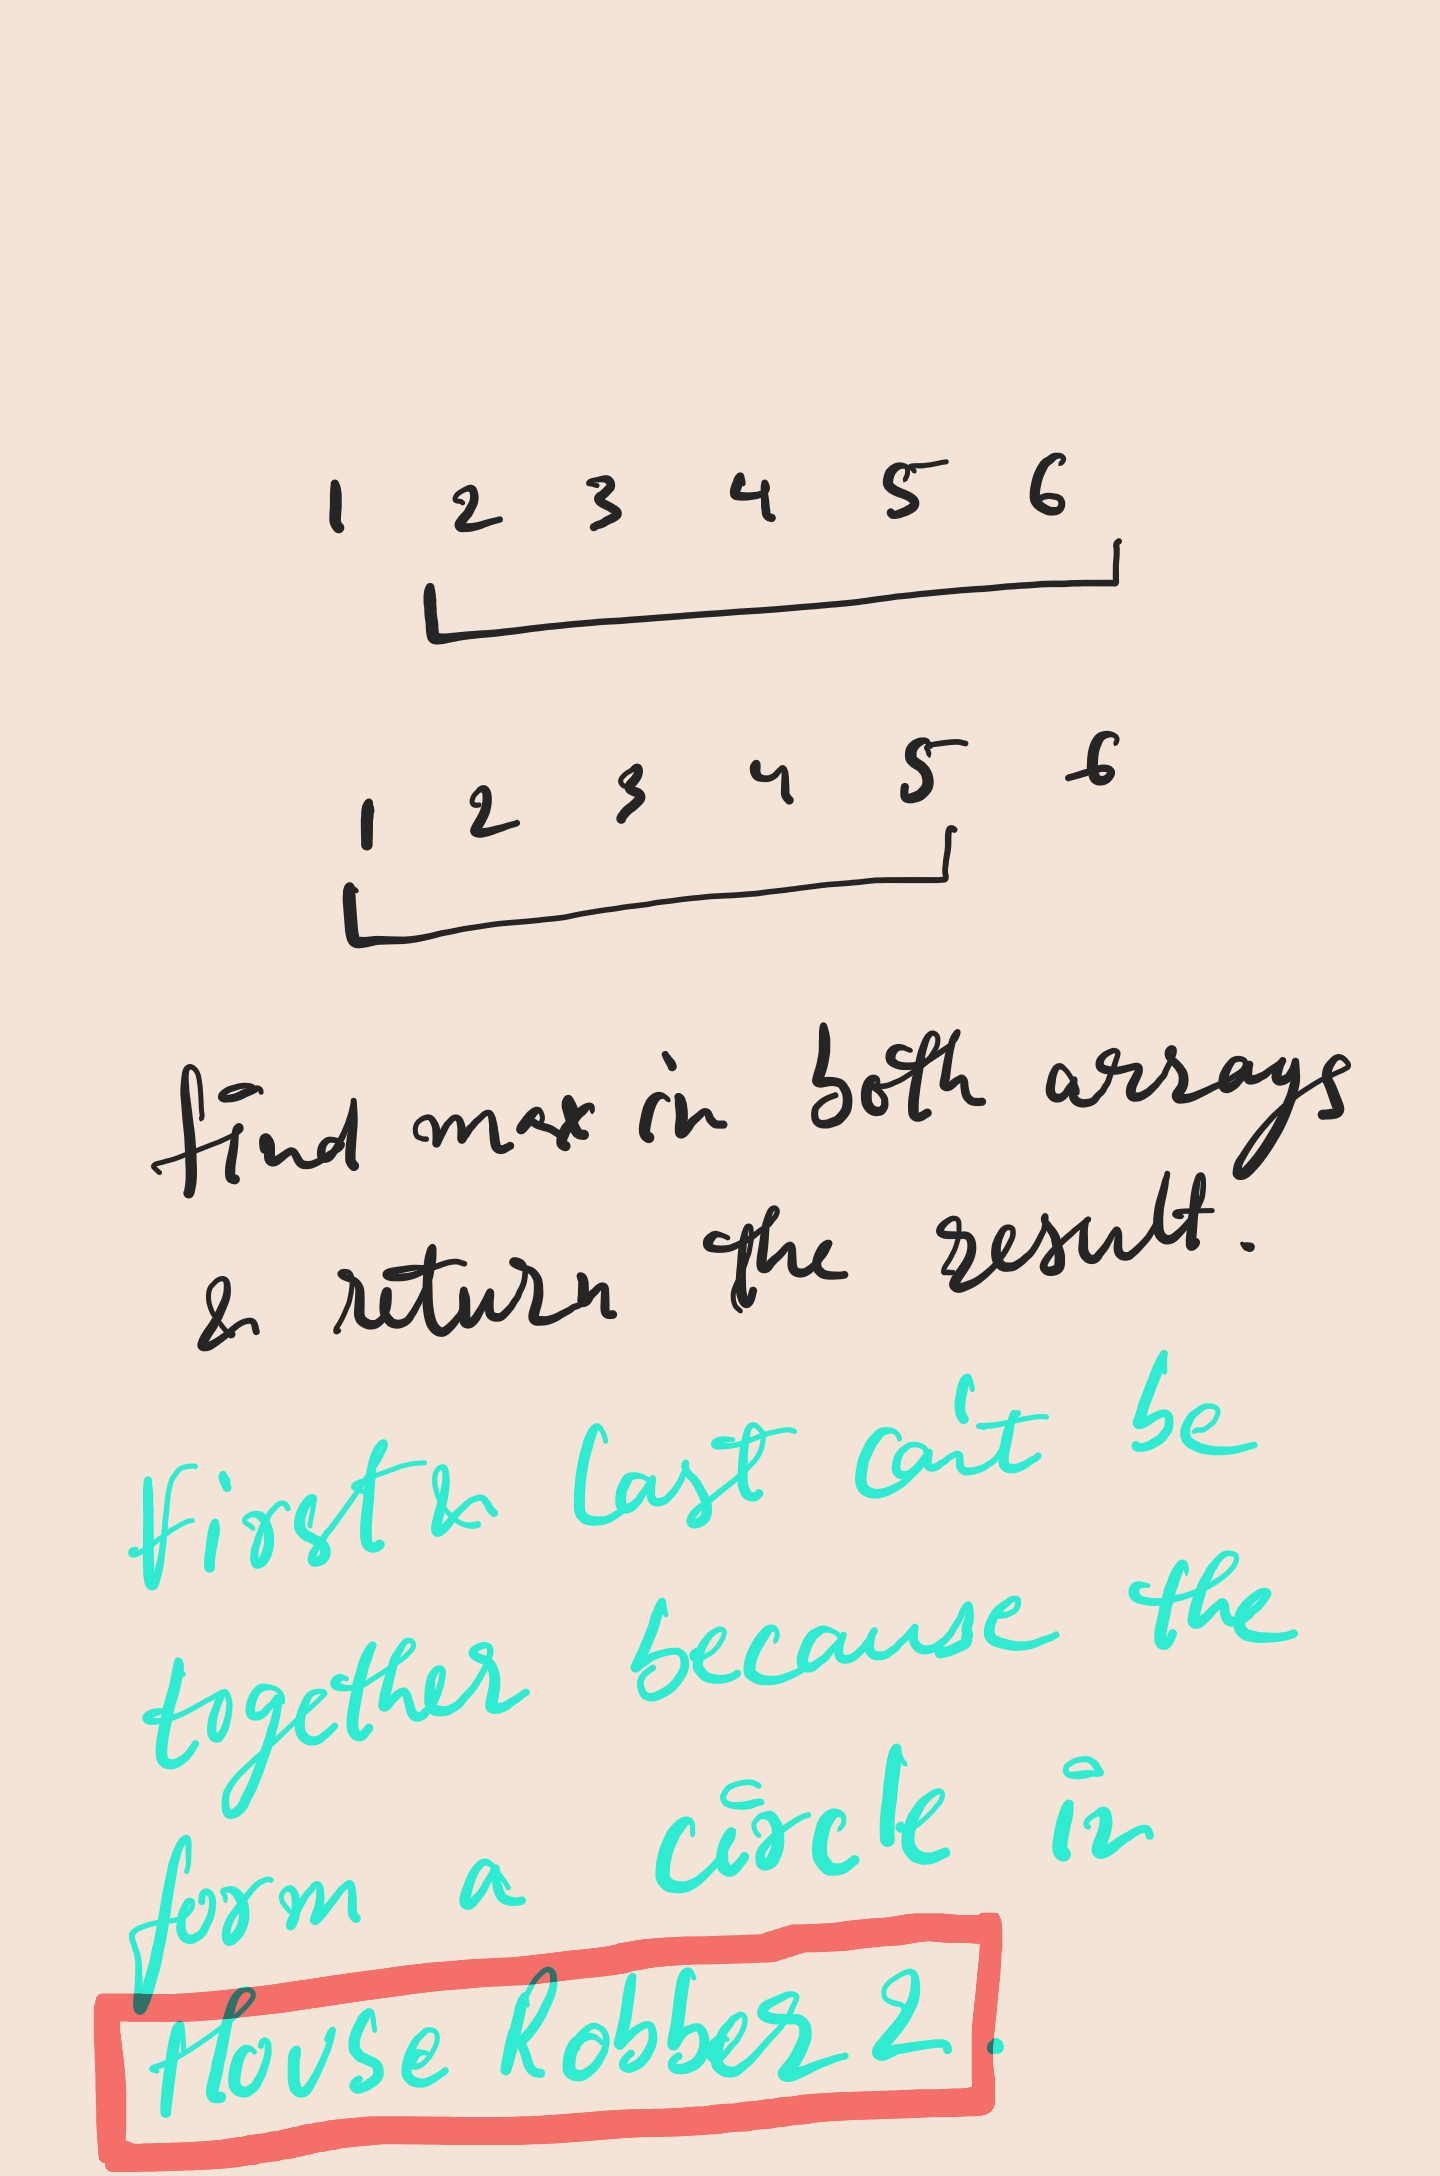 1 2 3 4 5 6
1 2 3 4 5 6
find max in both arrays
& return the result.
First & last can't be
together because the
form a circle in
House Robber 2.